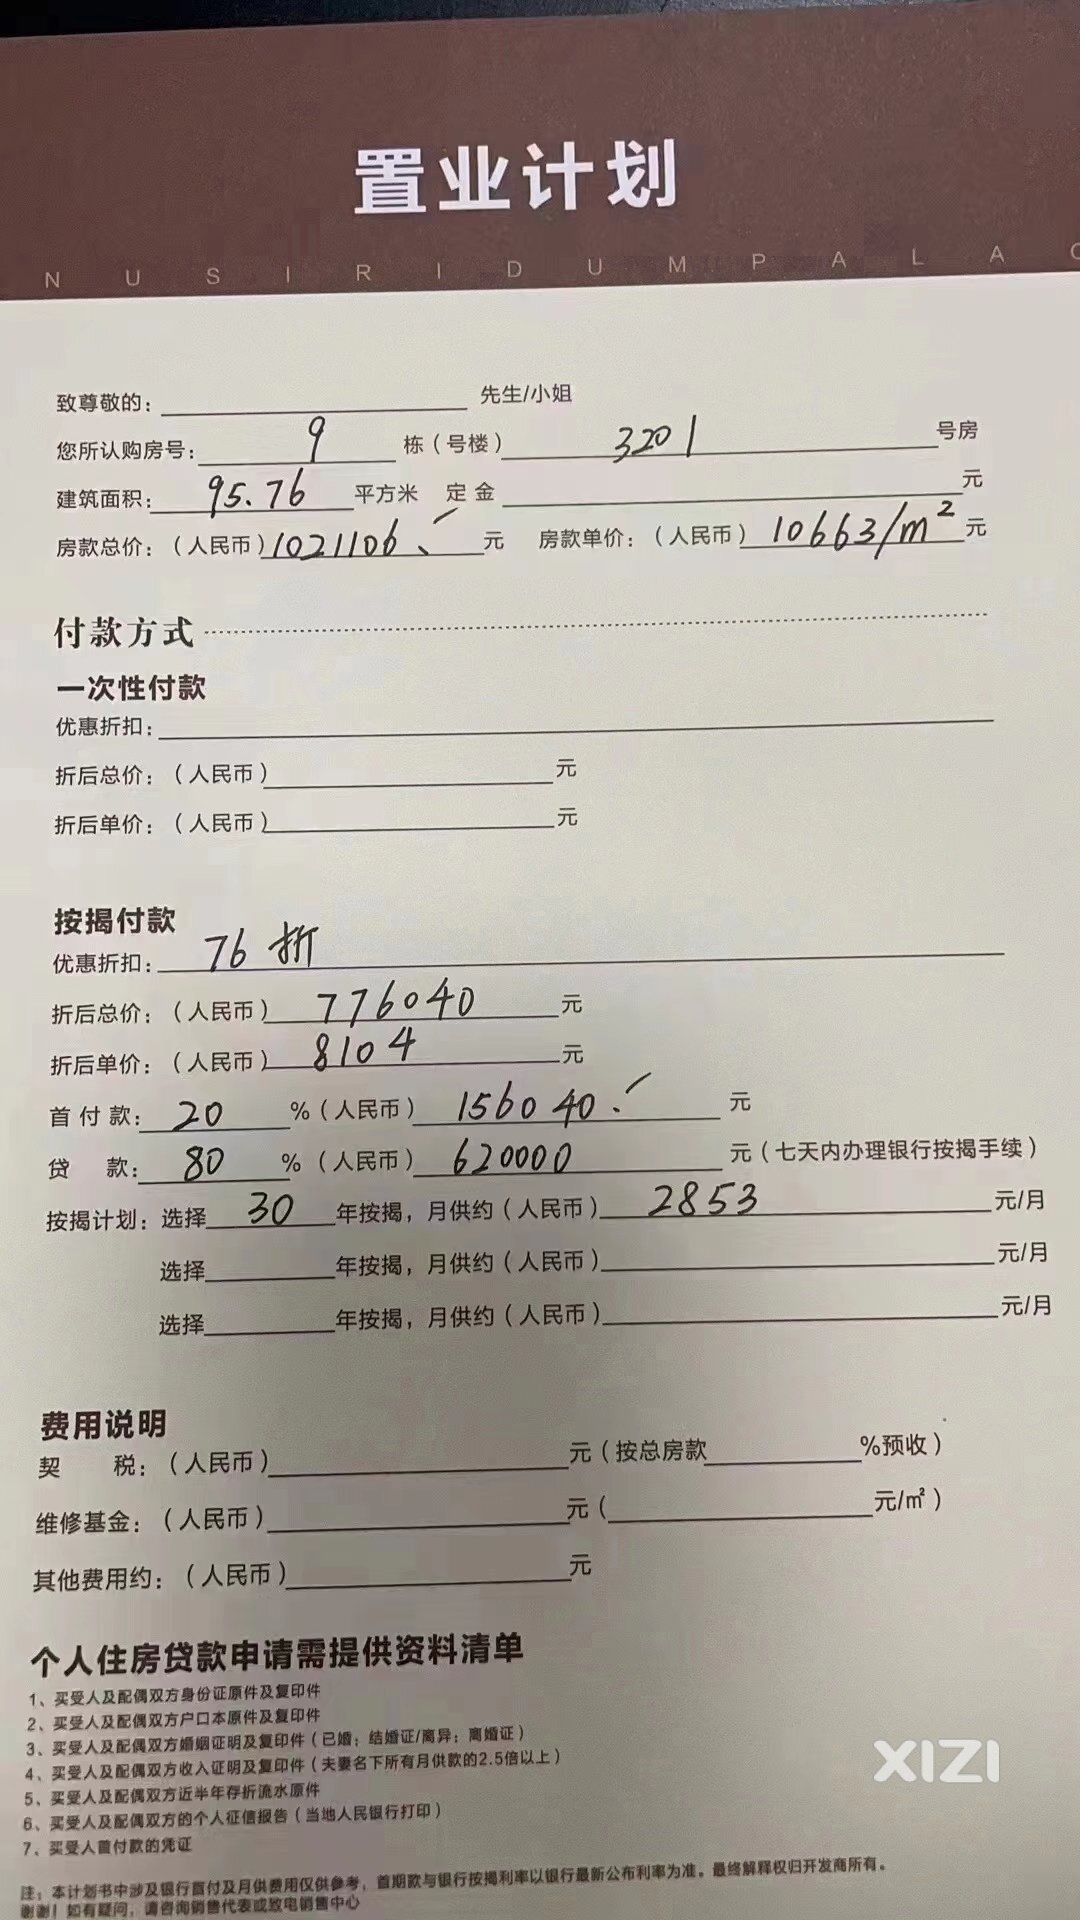 置业计划
NUSIRIDUMPALAC
致尊敬的：先生/小姐
您所认购房号：9栋（号楼）3201号房
建筑面积：95.76平方米 定金元
房款总价：（人民币）1021106、元 房款单价：（人民币）10663/m²元
付款方式
一次性付款
优惠折扣：
折后总价：（人民币）元
折后单价：（人民币）元
按揭付款
优惠折扣：76折
折后总价：（人民币）776040元
折后单价：（人民币）8104元
首付款：20%（人民币）156040.元
贷 款：80%（人民币）620000元（七天内办理银行按揭手续）
按揭计划：选择30年按揭，月供约（人民币）2853元/月
选择年按揭，月供约（人民币）元/月
选择年按揭，月供约（人民币）元/月
费用说明
契 税：（人民币）元（按总房款%预收）
维修基金：（人民币）元（元/㎡）
其他费用约：（人民币）元
个人住房贷款申请需提供资料清单
1、买受人及配偶双方身份证原件及复印件
2、买受人及配偶双方户口本原件及复印件
3、买受人及配偶双方婚姻证明及复印件（已婚：结婚证/离异：离婚证）
4、买受人及配偶双方收入证明及复印件（夫妻名下所有月供款的2.5倍以上）
5、买受人及配偶双方近半年存折流水原件
6、买受人及配偶双方的个人征信报告（当地人民银行打印）
7、买受人首付款的凭证
注：本计划书中涉及银行首付及月供费用仅供参考，首期款与银行按揭利率以银行最新公布利率为准。最终解释权归开发商所有。
谢谢！如有疑问，请咨询销售代表或致电销售中心
XIZI